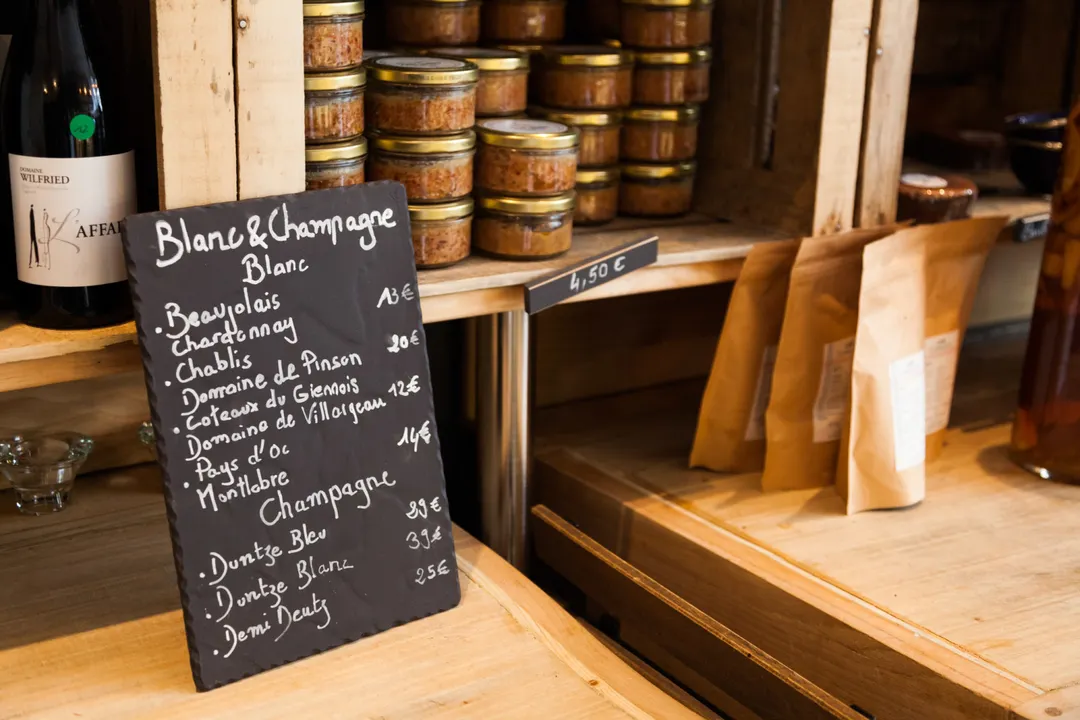 DOMAINE
WILFRIED
L'AFFAI
Blanc & Champagne
Blanc
. Beaujolais 13€
Chardonnay
. Chablis 20€
Domaine de Pinson
. Coteaux du Giennois 12€
Domaine de Villargeau
. Pays d'Oc 14€
Montlobre
Champagne
. Duntze Bleu 29€
. Duntze Blanc 39€
. Demi Deutz 25€
4,50 €